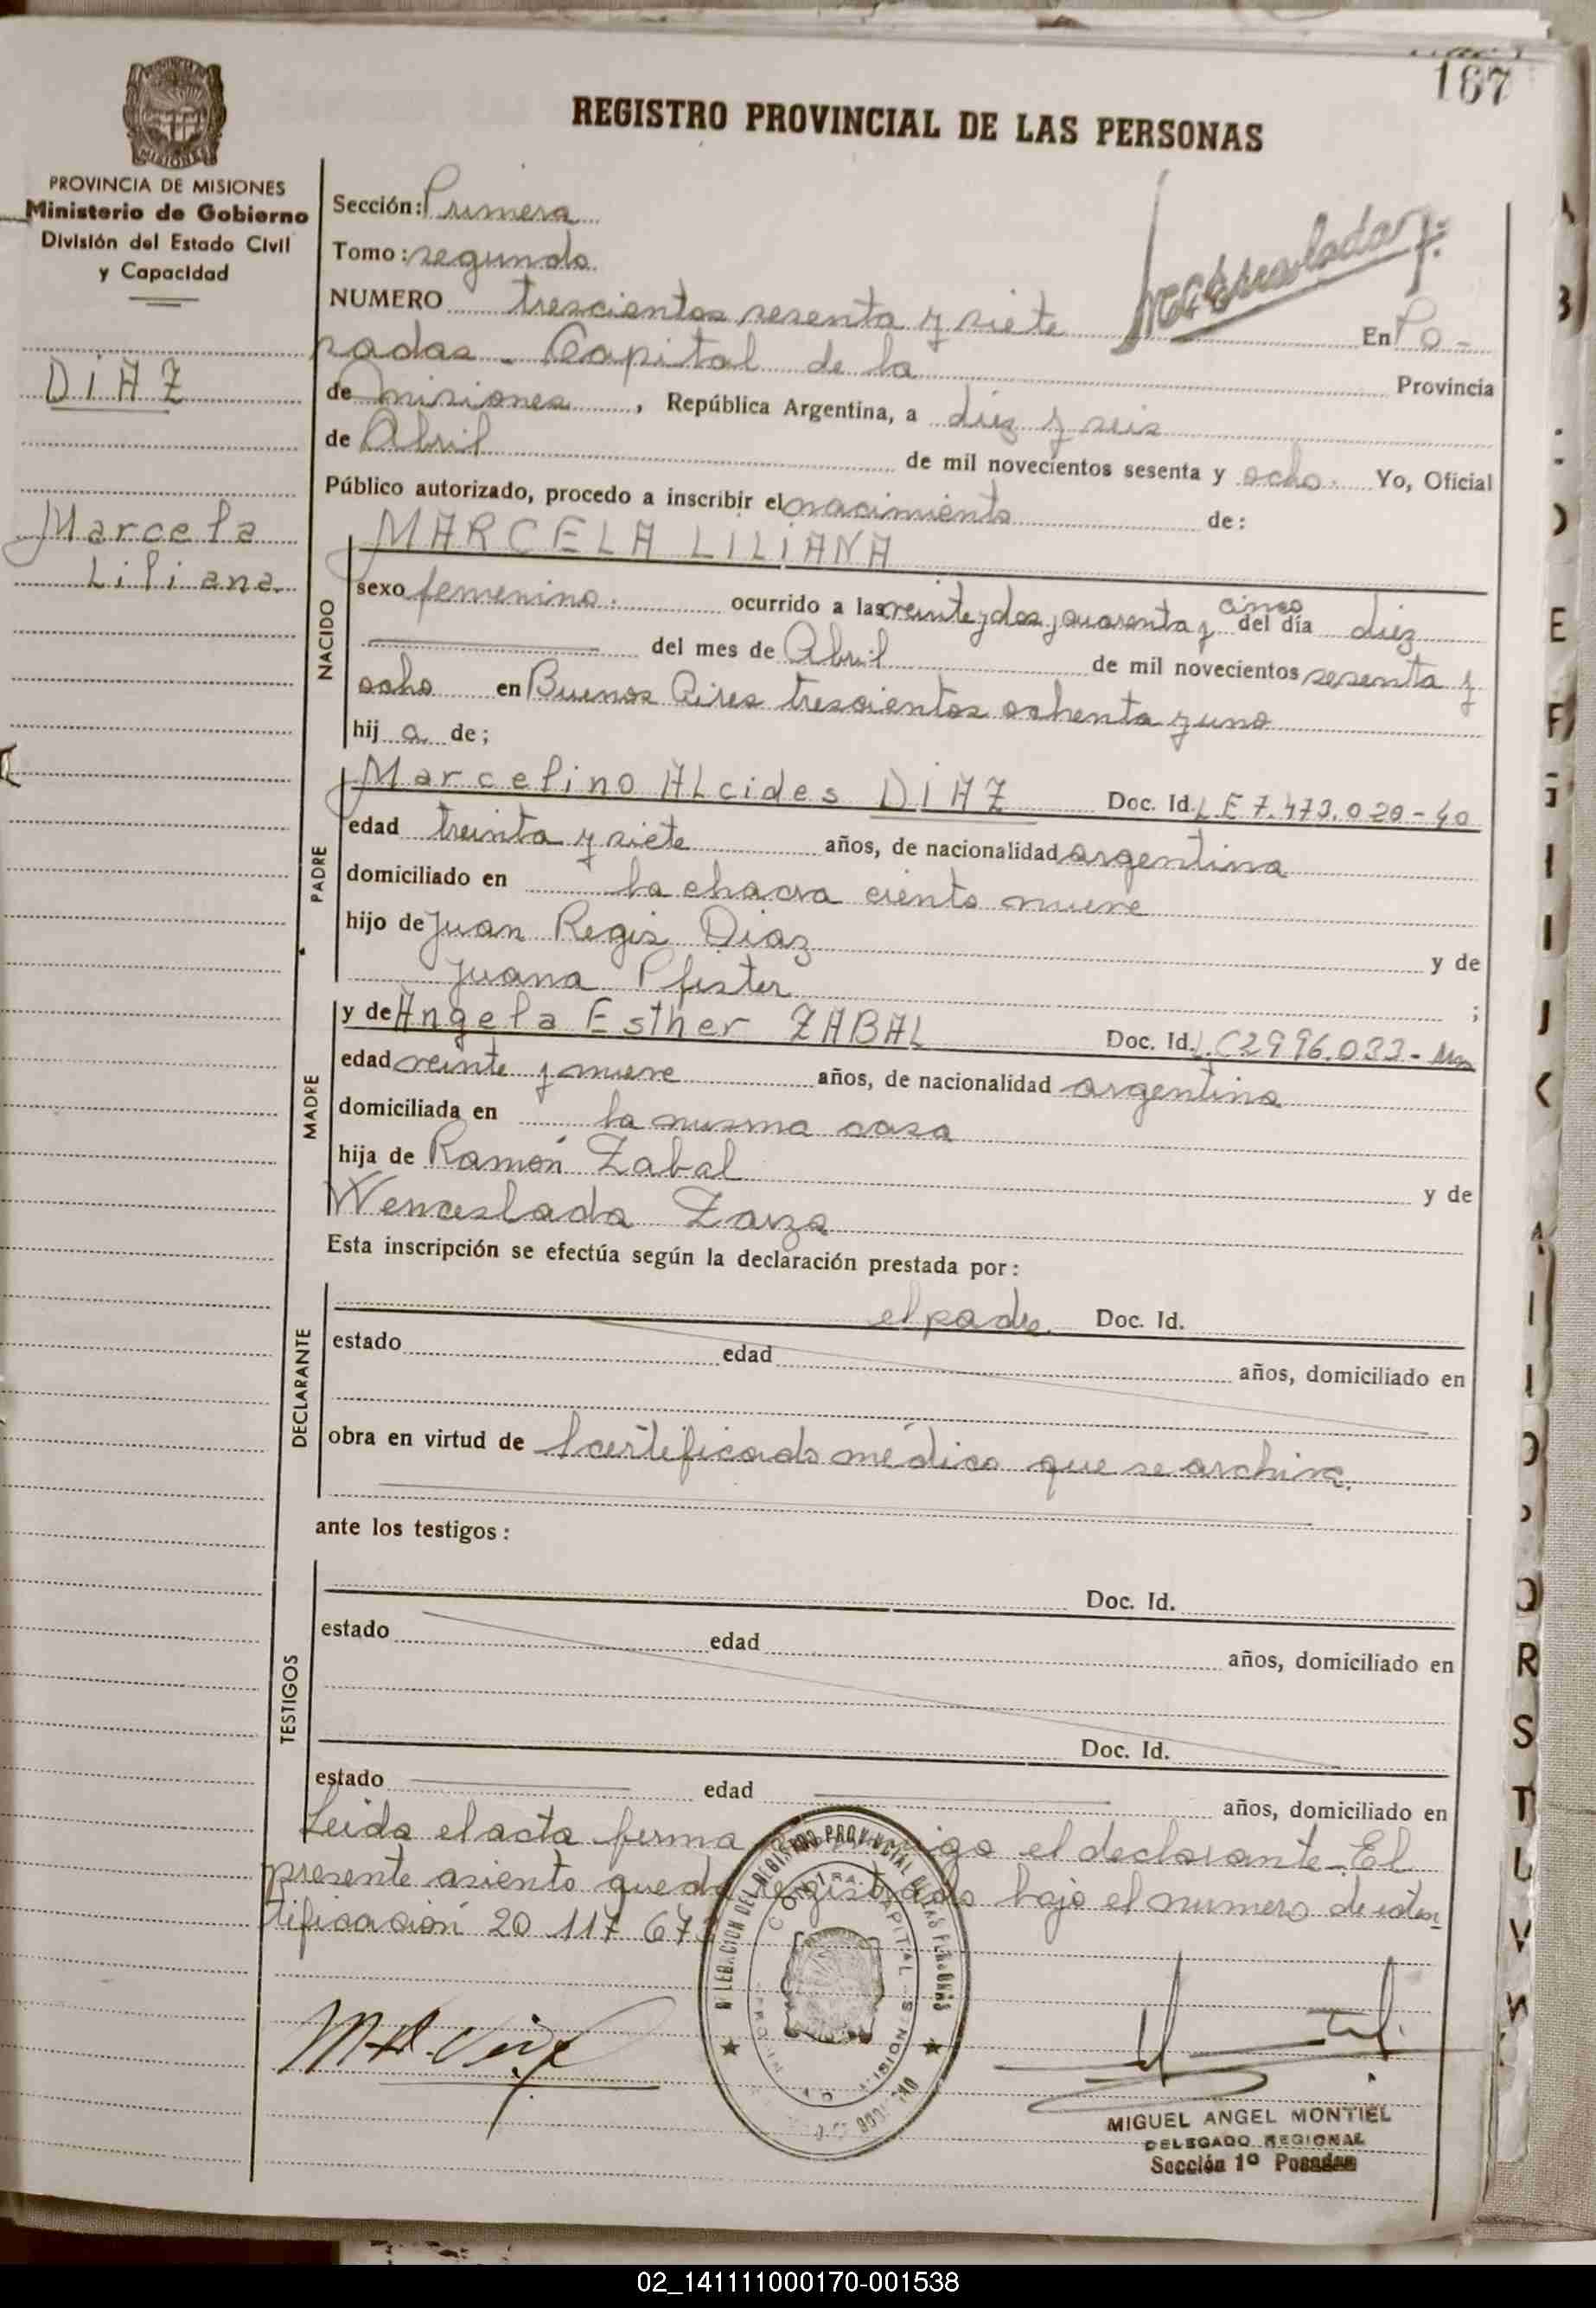 167
REGISTRO PROVINCIAL DE LAS PERSONAS
MISIONES
PROVINCIA DE MISIONES
Ministerio de Gobierno
División del Estado Civil
y Capacidad
DIAZ
Marcela
Liliana
Sección: Primera
Tomo: segundo
NUMERO trescientos sesenta y siete En Po-
sadas - Capital de la Provincia
de Misiones, República Argentina, a diez y seis
de Abril de mil novecientos sesenta y ocho. Yo, Oficial
Público autorizado, procedo a inscribir el nacimiento de:
NACIDO
MARCELA LILIANA
sexo femenino. ocurrido a las veinte y dos y cuarenta y cinco del día diez
del mes de Abril de mil novecientos sesenta y
ocho en Buenos Aires trescientos ochenta y uno
hij a de;
PADRE
Marcelino ALcides DIAZ Doc. Id. L E 7.473.020-40
edad treinta y siete años, de nacionalidad argentina
domiciliado en la chacra ciento nueve
hijo de Juan Regis Diaz y de
Juana Pfister ;
MADRE
y de Angela Esther ZABAL Doc. Id. L.C 2996.033-
edad veinte y nueve años, de nacionalidad argentina
domiciliada en la misma casa
hija de Ramón Zabal y de
Wenceslada Zarza
Esta inscripción se efectúa según la declaración prestada por:
DECLARANTE
el padre. Doc. Id.
estado edad años, domiciliado en
obra en virtud de l certificado médico que se archiva.
ante los testigos:
TESTIGOS
Doc. Id.
estado edad años, domiciliado en
Doc. Id.
estado edad años, domiciliado en
Leida el acta firma el declarante. El
presente asiento queda registrado bajo el numero de iden
tificación 20 117 673
MIGUEL ANGEL MONTIEL
DELEGADO REGIONAL
Sección 1º Posadas
E
F
G
I
I
J
K
R
S
T
U
V
02_141111000170-001538